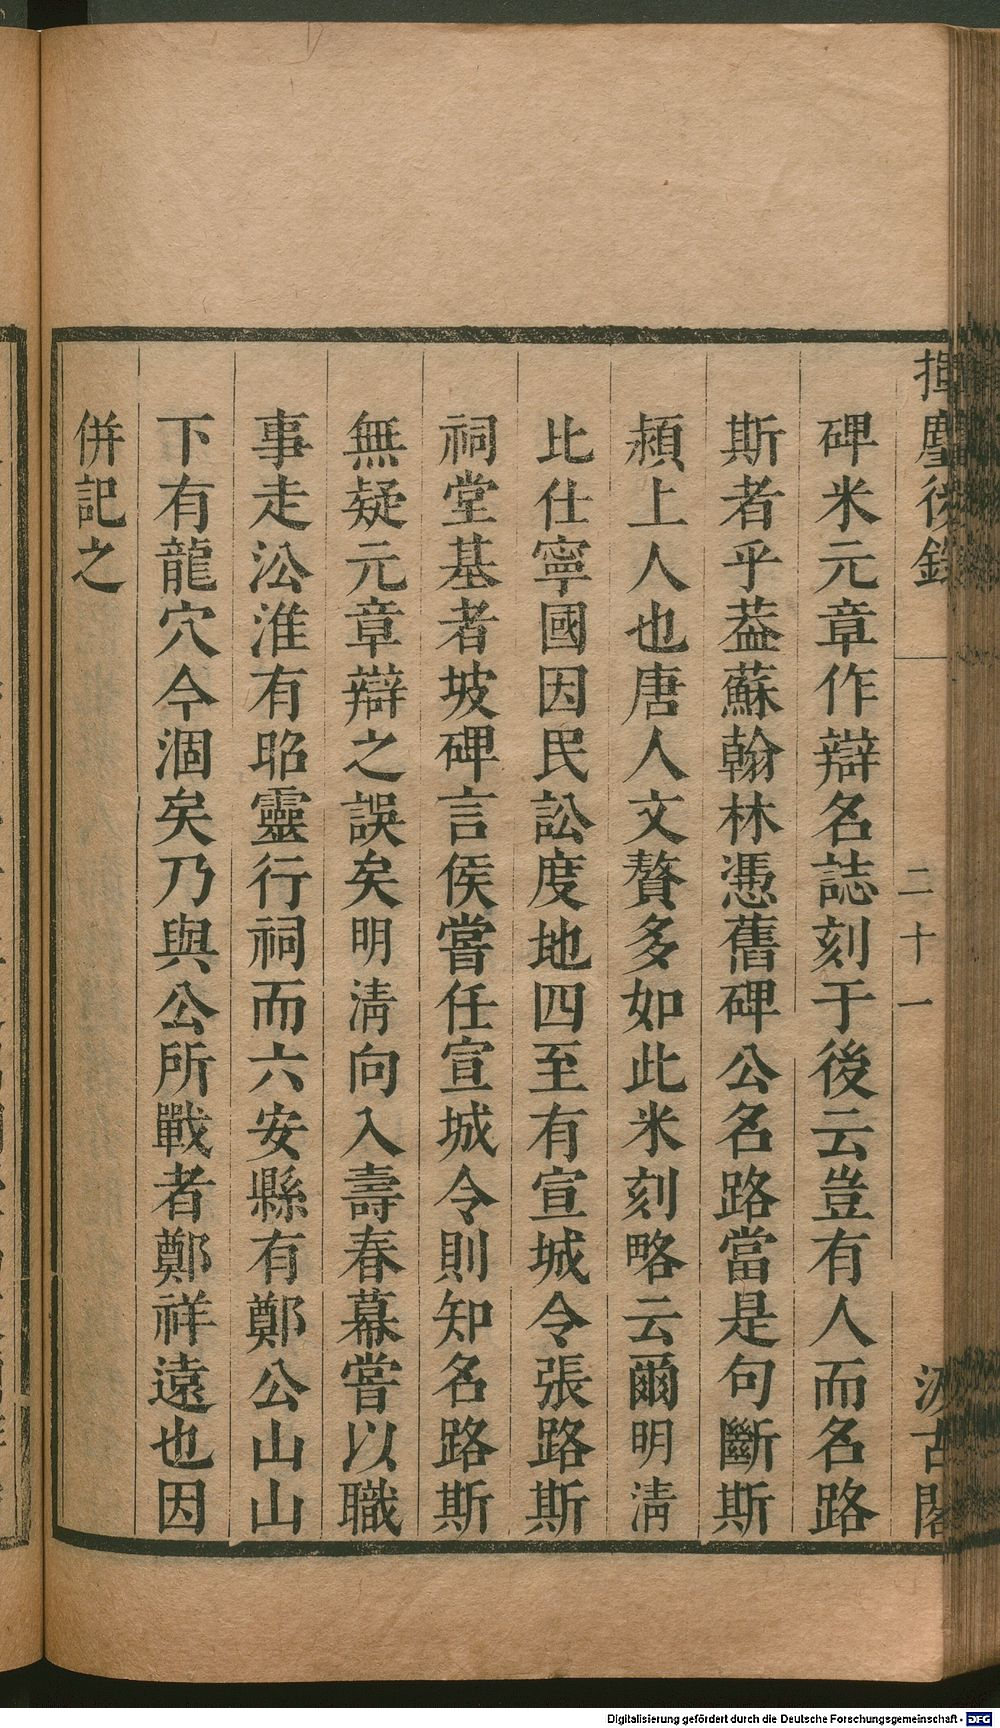 揮麈後錄
二十一
汲古閣
碑米元章作辯名誌刻于後云豈有人而名路
斯者乎葢蘇翰林憑舊碑公名路當是句斷斯
潁上人也唐人文贅多如此米刻略云爾明淸
比仕寧國因民訟度地四至有宣城令張路斯
祠堂基者坡碑言侯嘗任宣城令則知名路斯
無疑元章辯之誤矣明淸向入壽春幕嘗以職
事走㳂淮有昭靈行祠而六安縣有鄭公山山
下有龍穴今涸矣乃與公所戰者鄭祥遠也因
併記之
Digitalisierung gefördert durch die Deutsche Forschungsgemeinschaft - DFG